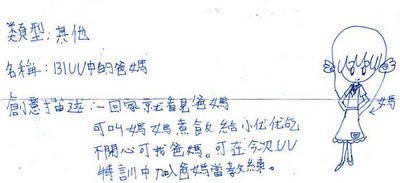 類型:其他
名稱:BIUU中的爸媽
創意描述:一回家就看見爸媽
可叫媽媽煮飯給小优优吃
不開心可找爸媽。可在今次UU
特訓中加入爸媽當教練。
媽媽